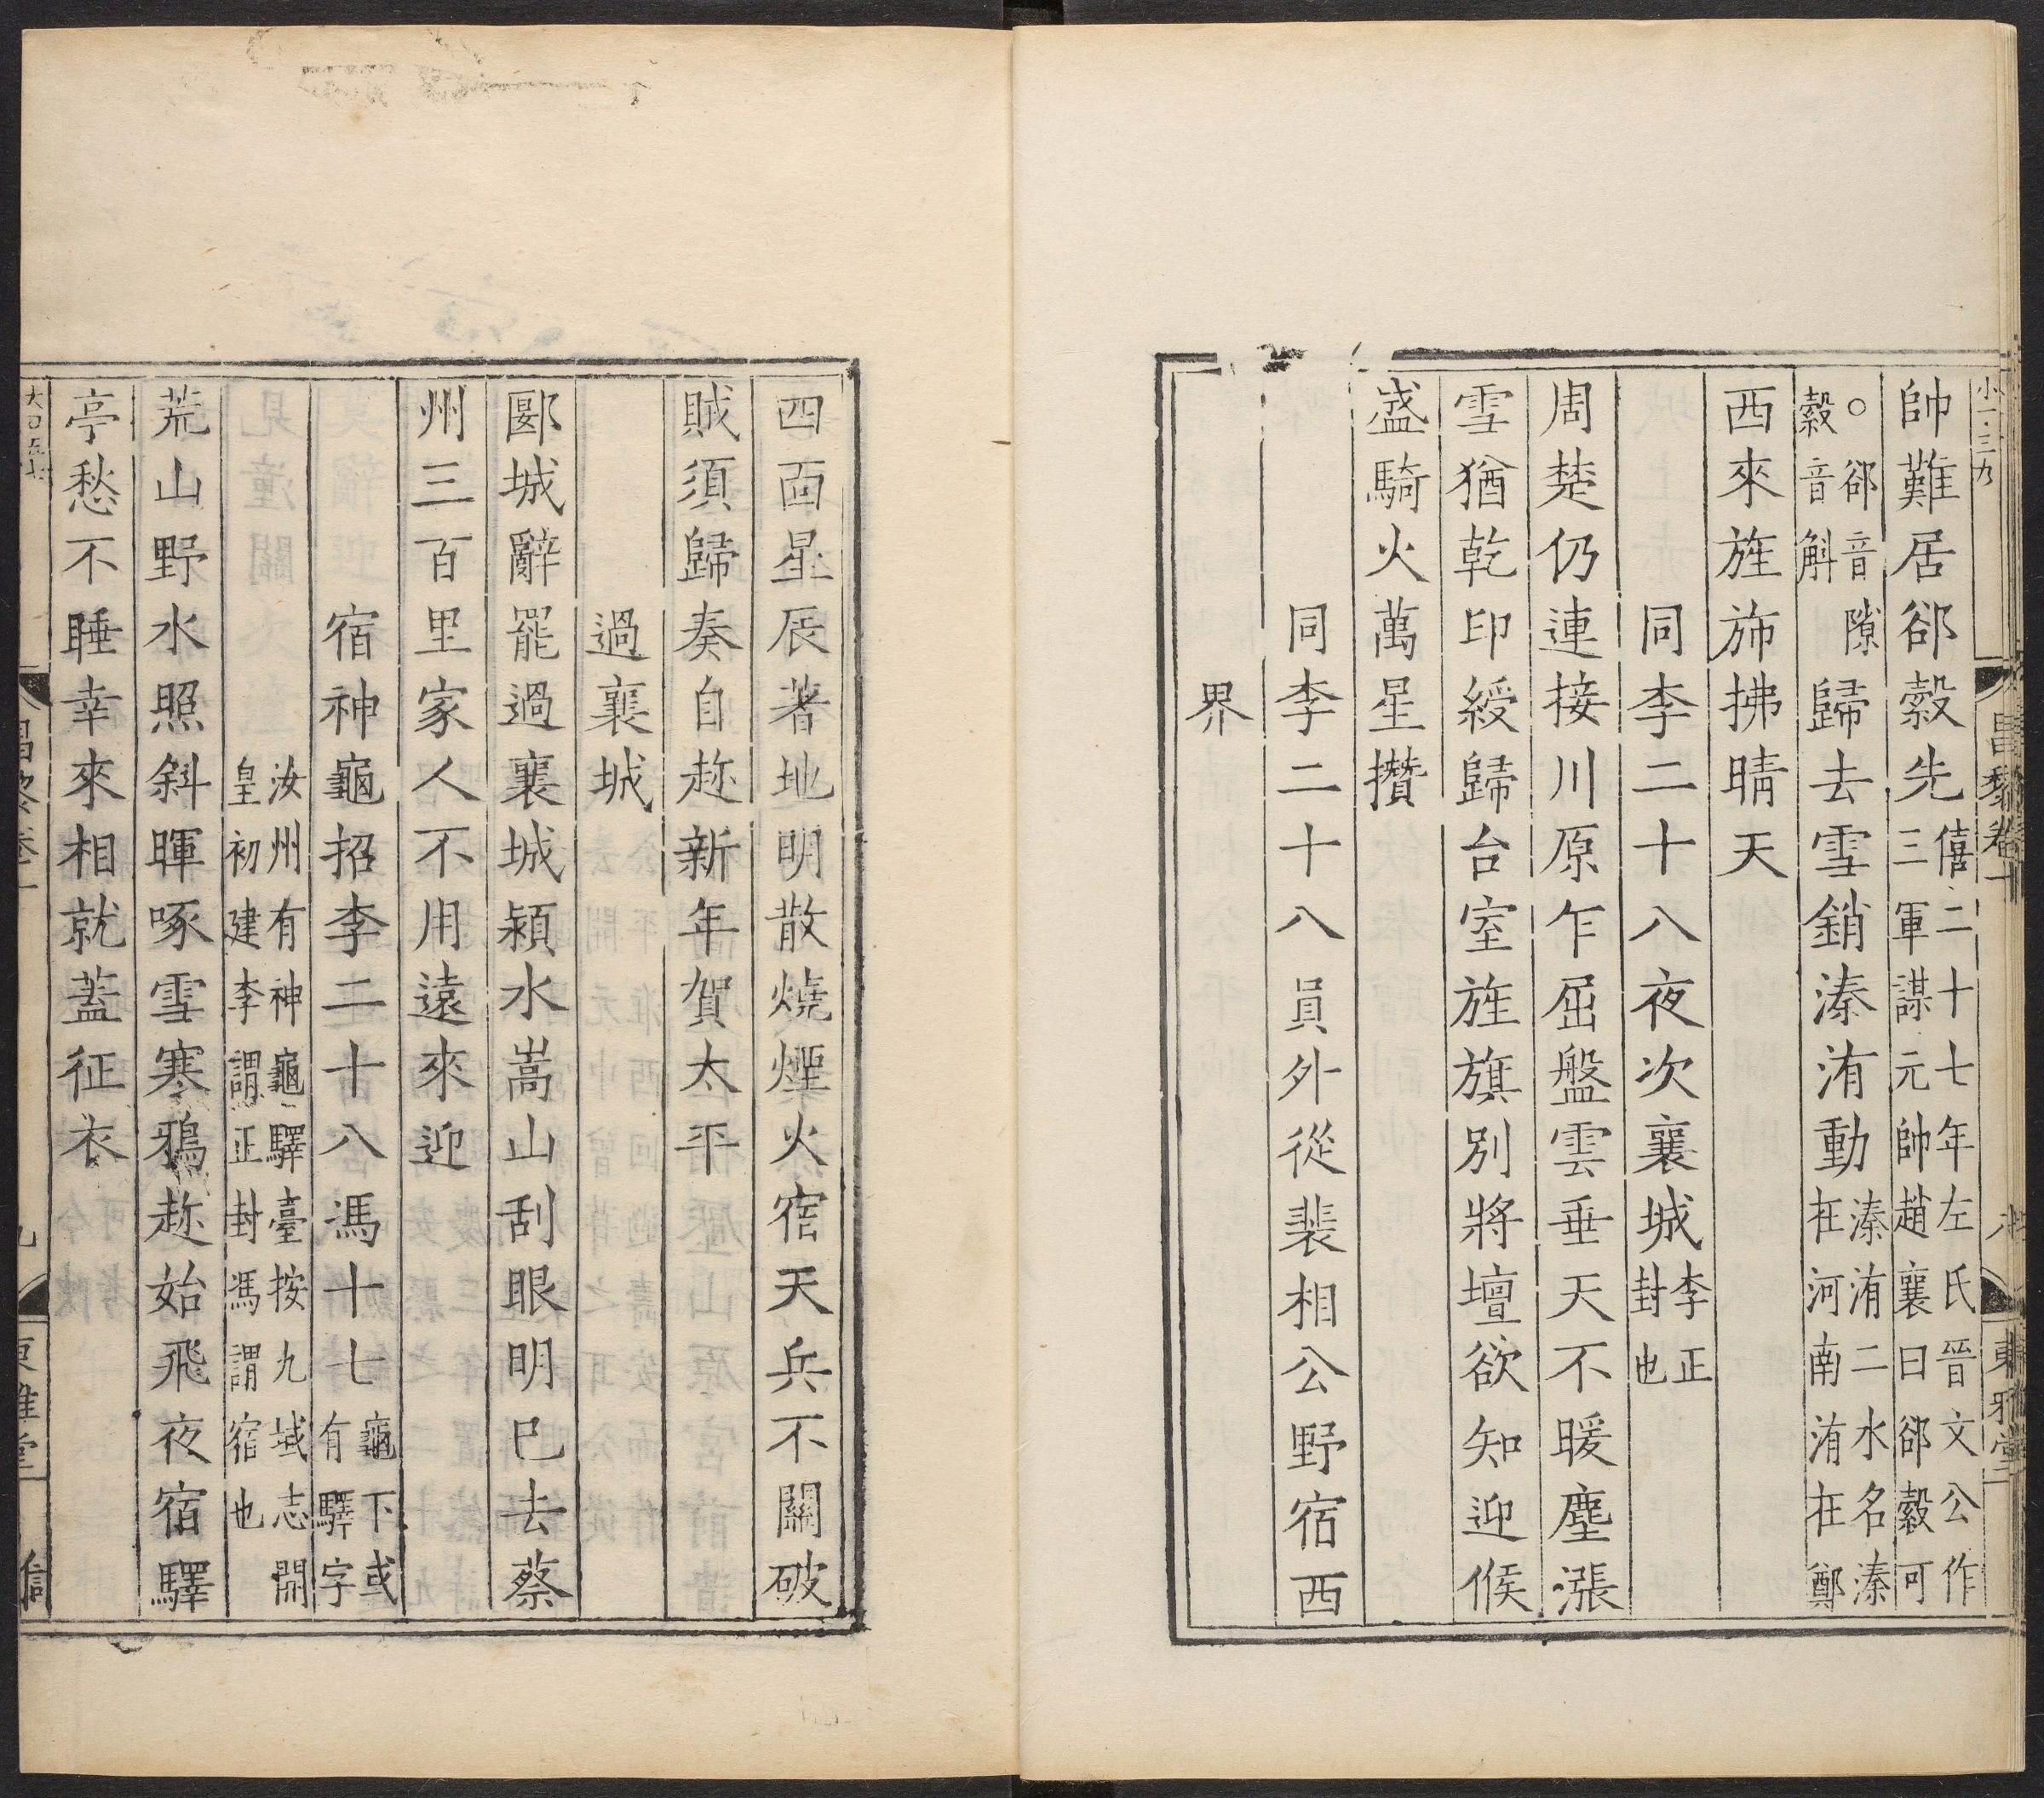 小一三九
昌黎卷十
東雅堂
帥難居郤縠先僖二十七年左氏晉文公作三軍謀元帥趙襄曰郤縠可
○郤音隙縠音斛歸去雪銷溱洧動溱洧二水名溱在河南洧在鄭
西來旌斾拂晴天
同李二十八夜次襄城李正封也
周楚仍連接川原乍屈盤雲垂天不暖塵漲
雪猶乾印綬歸台室旌旗別將壇欲知迎候
盛騎火萬星攢
同李二十八員外從裴相公野宿西
界
四面星辰著地明散燒煙火宿天兵不關破
賊須歸奏自趂新年賀太平
過襄城
郾城辭罷過襄城潁水嵩山刮眼明已去蔡
州三百里家人不用遠來迎
宿神龜招李二十八馮十七龜下或有驛字
汝州有神龜驛臺按九域志開皇初建李謂正封馮謂宿也
荒山野水照斜暉啄雪寒鴉趂始飛夜宿驛
亭愁不睡幸來相就蓋征衣